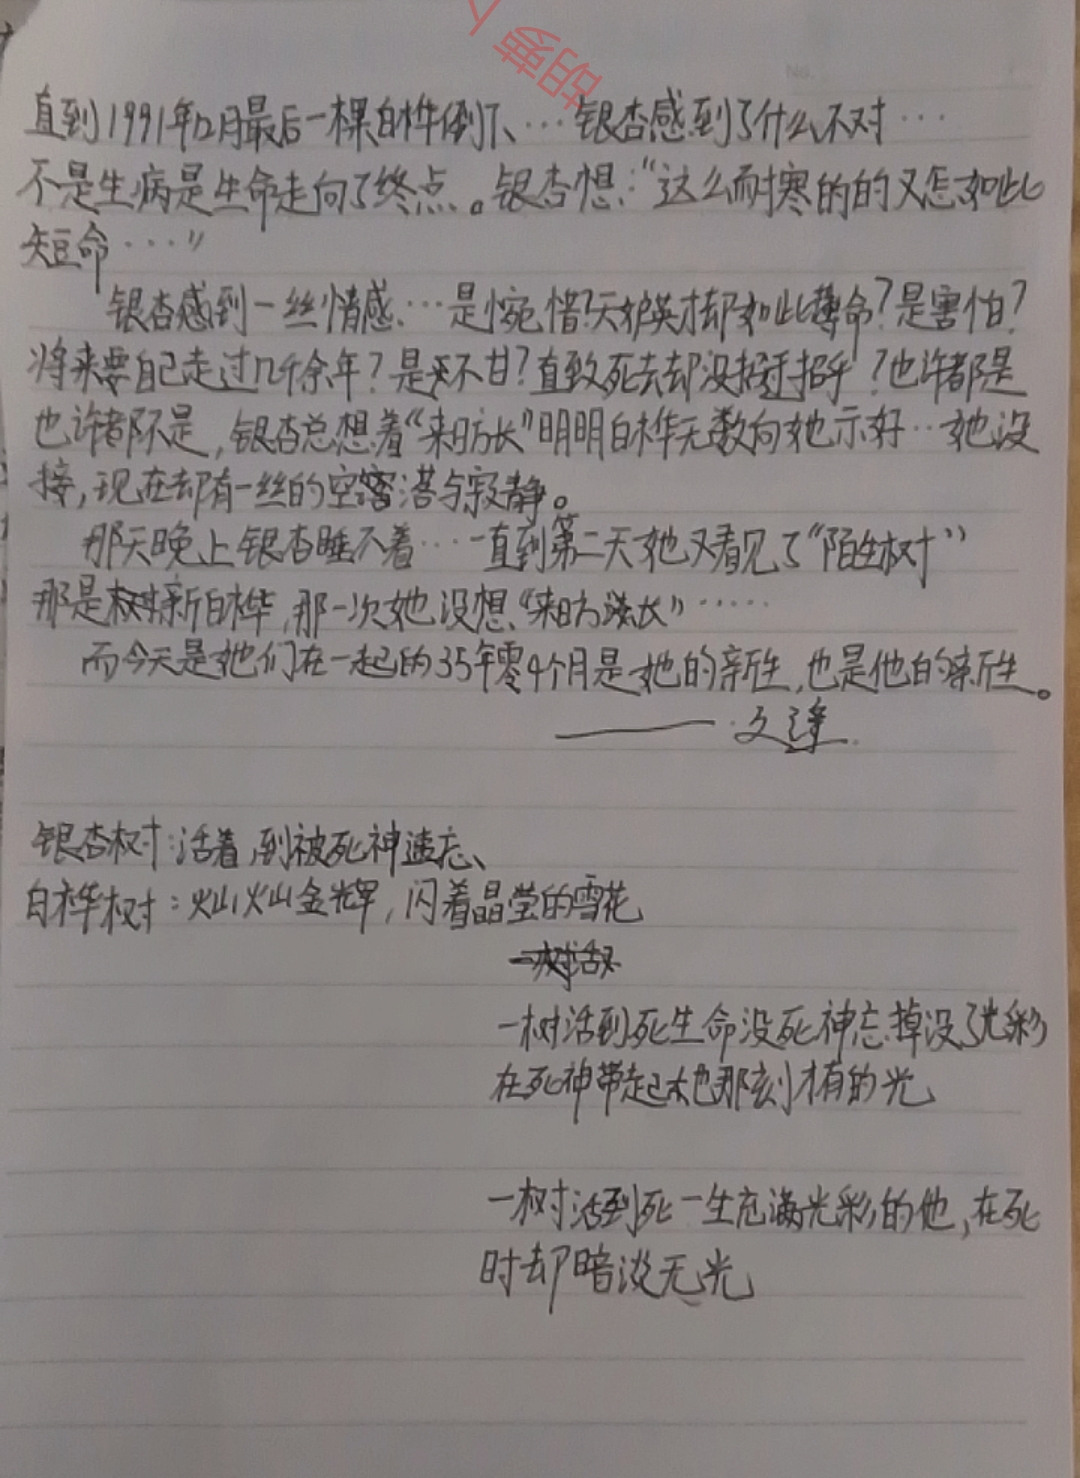 胡萝卜
直到1991年12月最后一棵白桦倒下、…银杏感到了什么不对…
不是生病是生命走向了终点。银杏想:“这么耐寒的的又怎如此
短命…”
银杏感到一丝情感…是惋惜?天妒英才却如此薄命?是害怕?
将来要自己走过几千余年?是不甘?直致死去却没打过招乎?也许都是
也许都不是,银杏总想着“来日方长”明明白桦无数向她示好…她没
接,现在却有一丝的空落与寂静。
那天晚上银杏睡不着…一直到第二天她又看见了“陌生树”
那是棵新白桦,那一次她没想“来日方长”……
而今天是她们在一起的35年零4个月是她的新生,也是他的新生。
——文逢
银杏树:活着,到被死神遗忘、
白桦树:灿灿金辉,闪着晶莹的雪花
一树活到死生命没死神忘掉没了光彩
在死神带起她那刻才有的光
一树活到死一生充满光彩的他,在死
时却暗淡无光